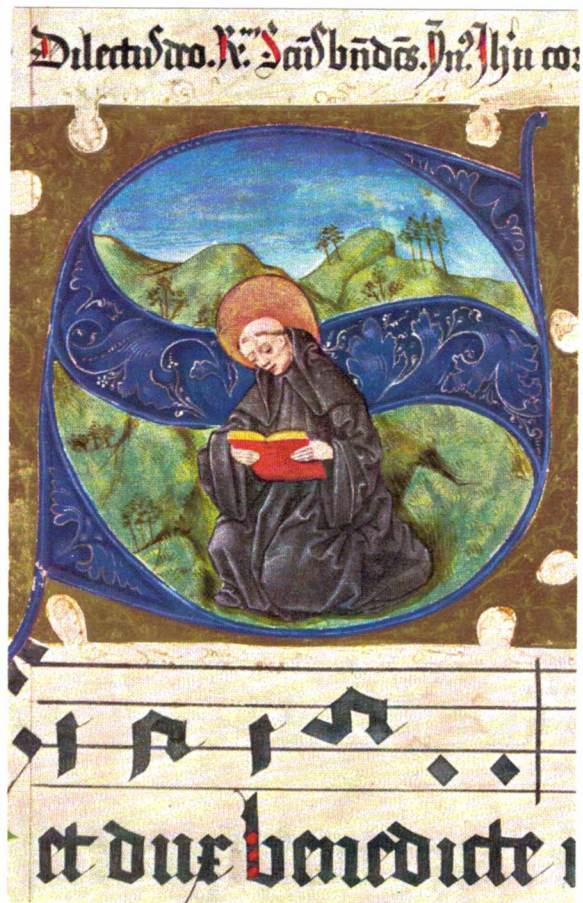 Dilectus deo. R̄. Sc̄us bn̄dc̄s. Yn̄9 Ih̄u cor
et dux benedicte